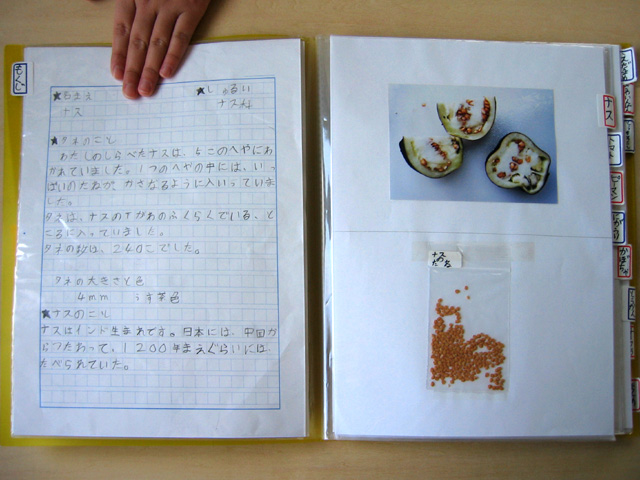 もくじ
★なまえ ★しゅるい
ナス ナス科
★タネのこと
わたしのしらべたナスは、5このへやにわ
かれていました。1つのへやの中には、いっ
ぱいのたねが、かさなるように入いっていま
した。
タネは、ナスのすがわのふくらくでいる、と
ころに入っていました。
タネの数は、240こでした。
タネの大きさと色
4mm うす茶色
★ナスのこと
ナスはインド生まれです。日本には、中国か
らつたわって、1200年まえぐらいには
たべられていた。
ナスの
たね
ナス
トマト
ピーマン
かぼちゃ